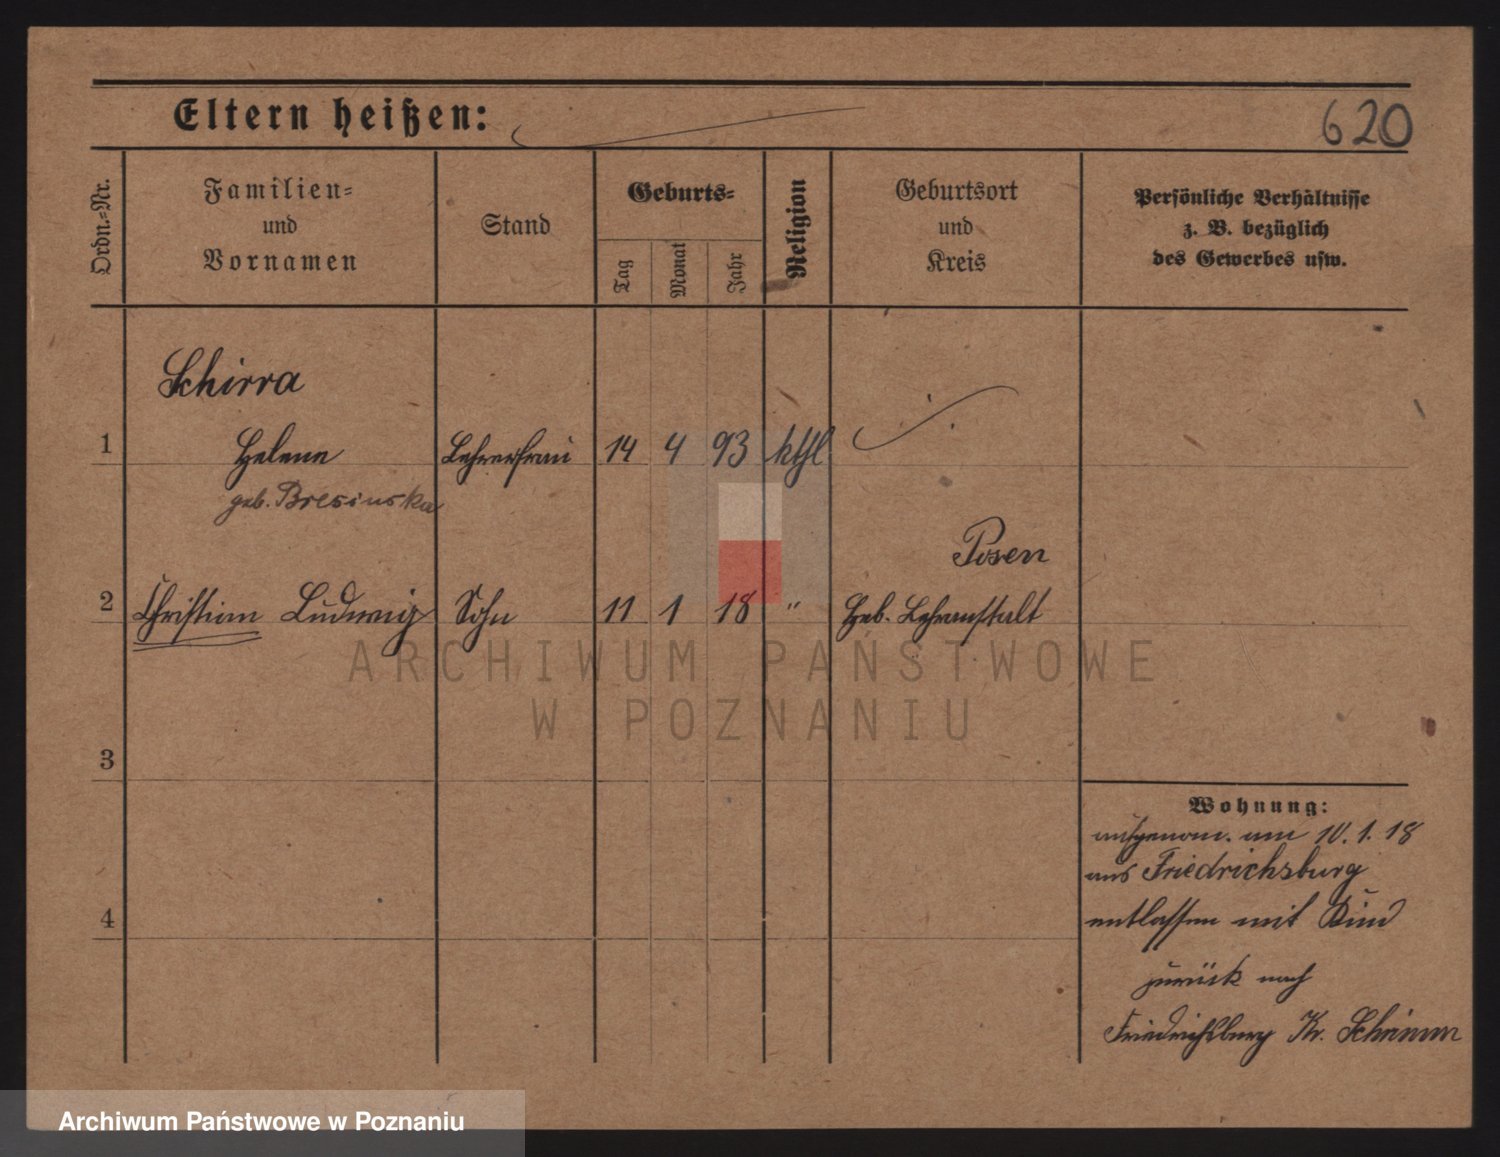 Eltern heißen:
620
Ordn.=Nr.
Familien=
und
Vornamen
Stand
Geburts=
Tag
Monat
Jahr
Religion
Geburtsort
und
Kreis
Persönliche Verhältnisse
z. B. bezüglich
des Gewerbes usw.
Schirra
1 Helene Lehrerfrau 14 4 93 kthl
geb. Bresinska
Posen
2 Christian Ludwig Sohn 11 1 18 " Heb. Lehranstalt
ARCHIWUM PAŃSTWOWE
W POZNANIU
3
Wohnung:
aufgenom. am 10. 1. 18
aus Friedrichsburg
4
entlassen mit Kind
zurück nach
Friedrichsburg Kr. Schrimm
Archiwum Państwowe w Poznaniu